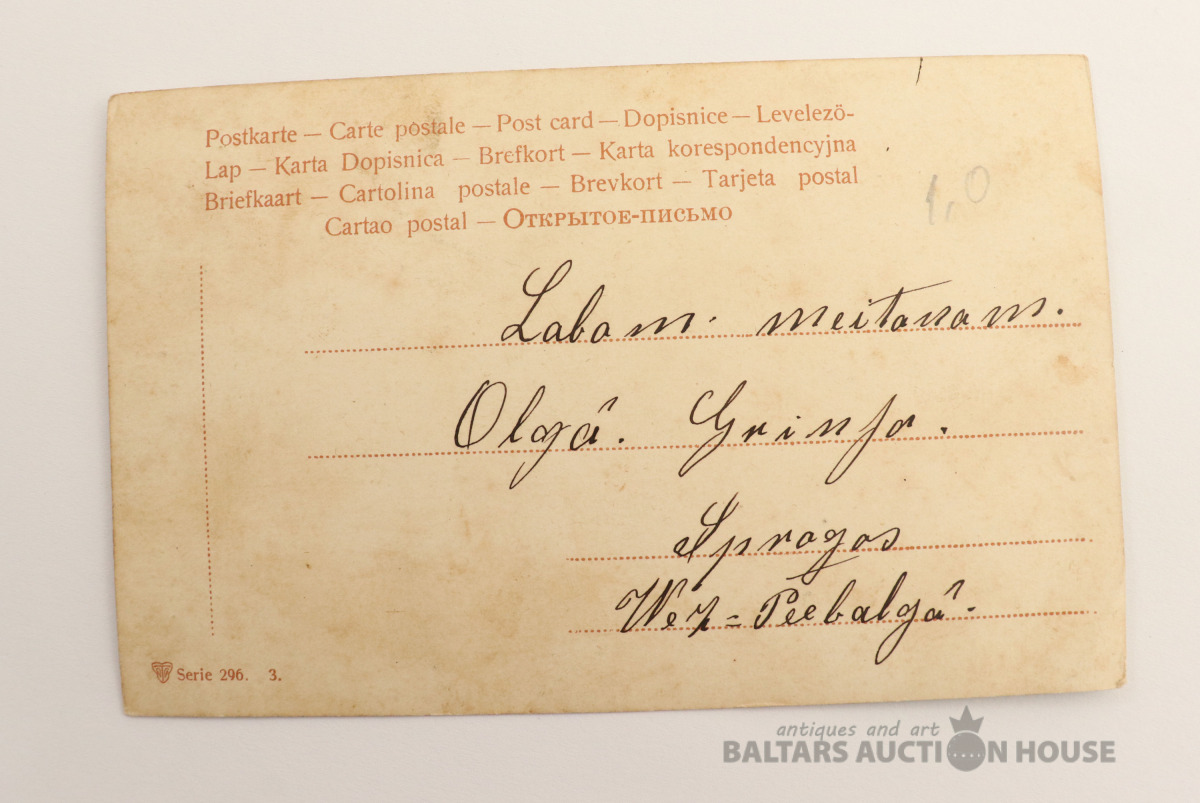 Postkarte — Carte postale — Post card — Dopisnice — Levelező-
Lap — Karta Dopisnica — Brefkort — Karta korespondencyjna
Briefkaart — Cartolina postale — Brevkort — Tarjeta postal
Cartao postal — Открытое-письмо
1,0
Labam meitanam.
Olgâ. Grinfa.
Spragos
Wez=Peebalgâ.
Serie 296. 3.
antiques and art
BALTARS AUCTION HOUSE